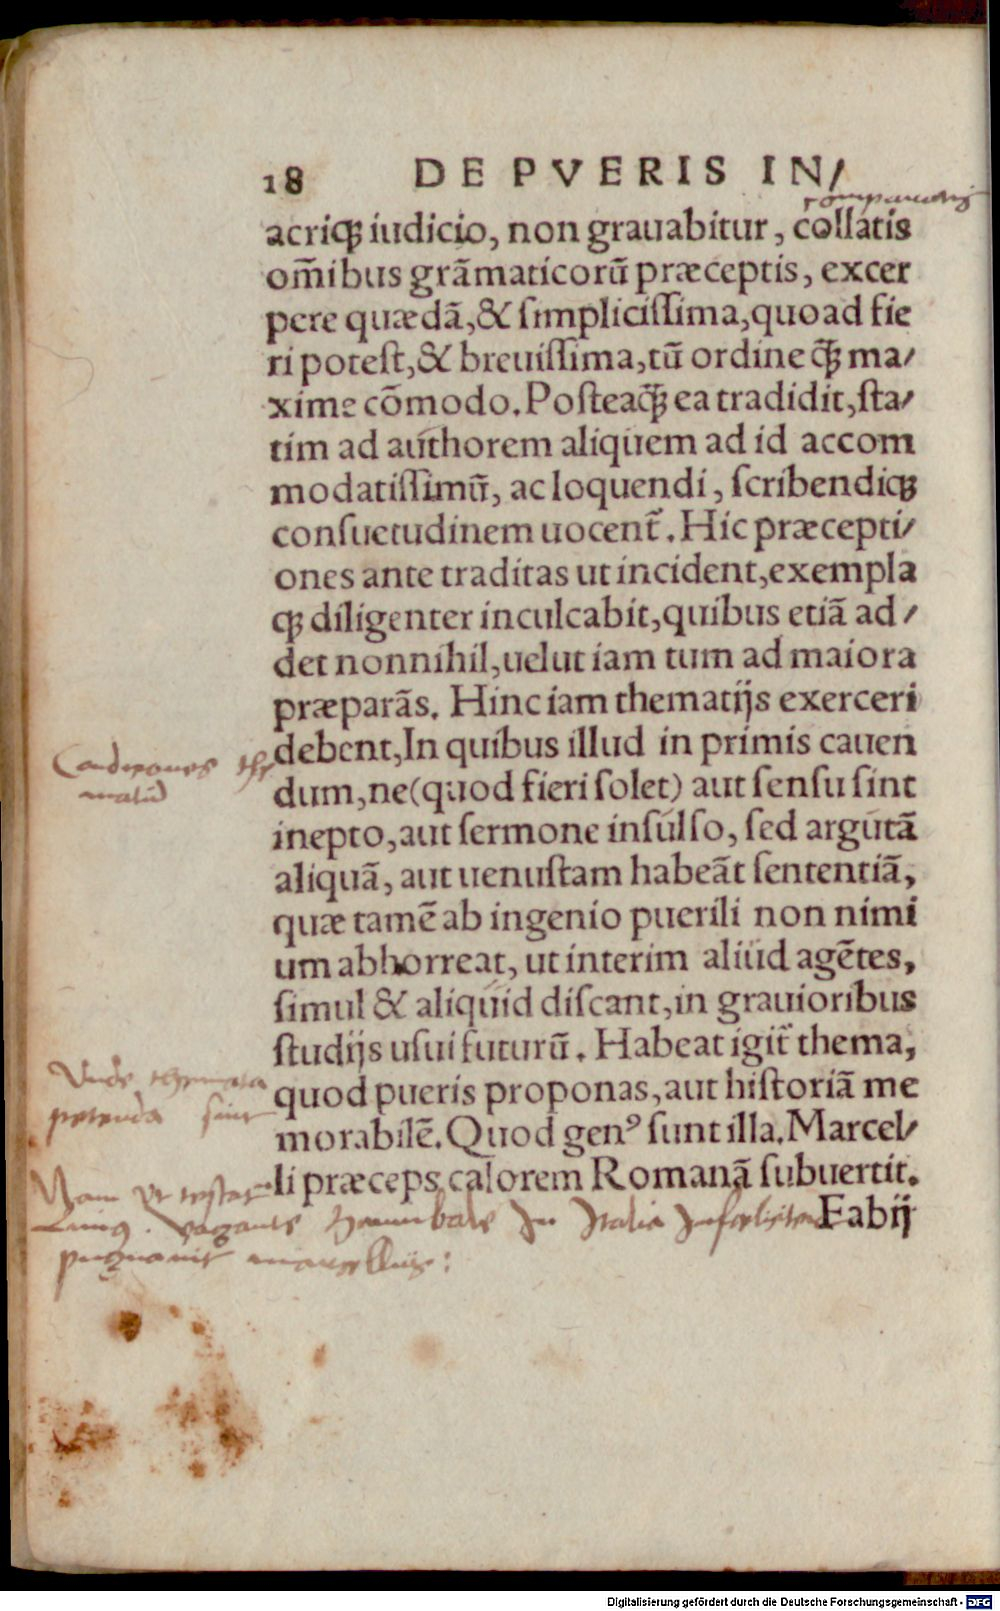 18 DE PVERIS IN/
acriq́ʒ iudicio, non grauabitur, collatis
om̃ibus grãmaticorũ præceptis, excer
pere quædã,& simplicissima,quoad fie
ri potest,& breuissima,tũ ordine q̃ʒ ma/
xime cõmodo. Posteaq̃ʒ ea tradidit,sta/
tim ad authorem aliquem ad id accom
modatissimũ, ac loquendi, scribendiqʒ
consuetudinem uocent̃. Hic præcepti/
ones ante traditas ut incident,exempla
qʒ diligenter inculcabit,quibus etiã ad/
det nonnihil,uelut iam tum ad maiora
præparãs. Hinc iam thematijs exerceri
debent,In quibus illud in primis cauen
dum,ne(quod fieri solet) aut sensu sint
inepto,aut sermone insulso, sed argutã
aliquã, aut uenustam habeãt sententiã,
quæ tamẽ ab ingenio puerili non nimi
um abhorreat, ut interim aliud agẽtes,
simul & aliquid discant,in grauioribus
studijs usui futurũ. Habeat igit̃ thema,
quod pueris proponas,aut historiã me
morabilẽ. Quod genꝰ sunt illa. Marcel/
li præceps calorem Romanã subuertit.
Fabij
Condiciones the
matũ
Unde themata
petenda sint
Nam ut testatur
Liuius. vagante Hannibale In Italia Infeliciter
pugnauit marcellus:
Digitalisierung gefördert durch die Deutsche Forschungsgemeinschaft - DFG